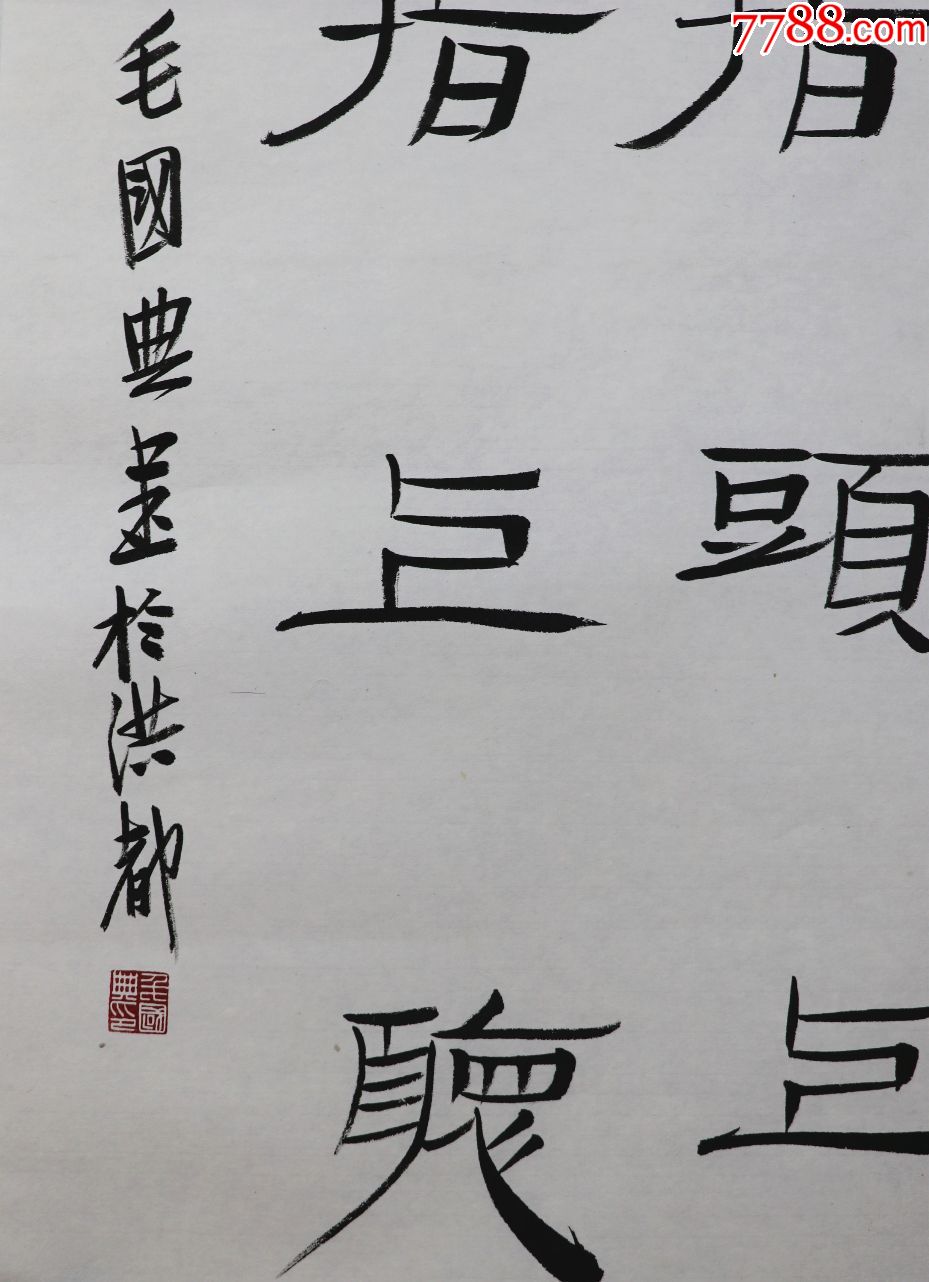 7788.com
指頭上
指上聽
毛國典書於洪都
毛國典印